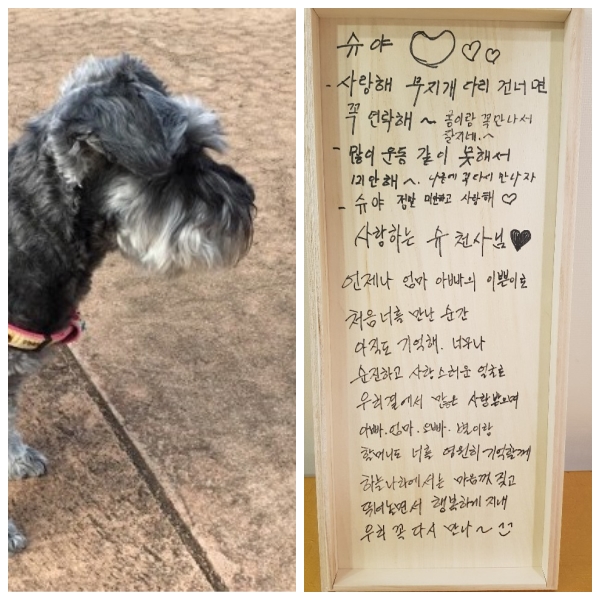 슈야 ♡♡♡
- 사랑해 무지개 다리 건너면
꼭 연락해 ~ 콩이랑 꼭 만나서
잘지내.^
- 많이 운동 같이 못해서
미안해 ~. 나중에 꼭 다시 만나자
- 슈야 정말 미안하고 사랑해 ♡
사랑하는 슈 천사님 ♥
언제나 엄마 아빠의 이쁜이로
처음 너를 만난 순간
아직도 기억해. 너무나
순진하고 사랑스러운 얼굴로
우리곁에서 많은 사랑받으며
아빠.엄마.오빠. 별이랑
할머니도 너를 영원히 기억할께
하늘나라에서는 마음껏 짖고
뛰어놀면서 행복하게 지내
우리 꼭 다시 만나 ~